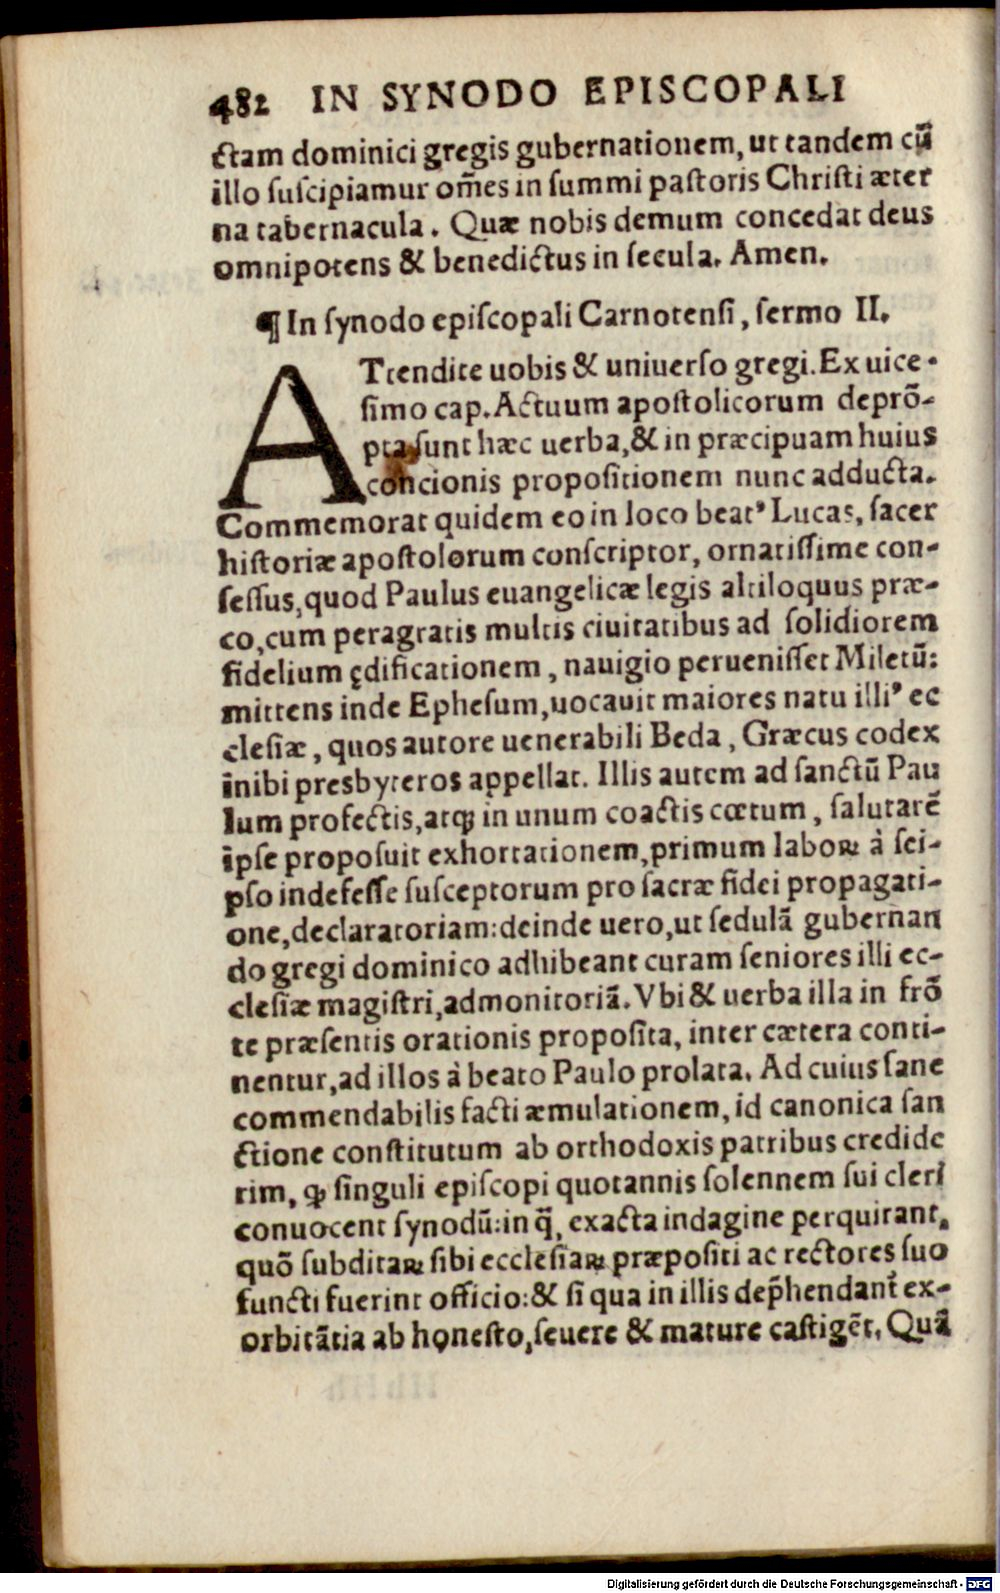 482 IN SYNODO EPISCOPALI
ctam dominici gregis gubernationem, ut tandem cũ
illo suscipiamur om̃es in summi pastoris Christi æter
na tabernacula. Quæ nobis demum concedat deus
omnipotens & benedictus in secula. Amen.
¶ In synodo episcopali Carnotensi, sermo II.
ATtendite uobis & uniuerso gregi. Ex uice-
simo cap. Actuum apostolicorum deprõ-
pta sunt hæc uerba, & in præcipuam huius
concionis propositionem nunc adducta.
Commemorat quidem eo in loco beatꝰ Lucas, sacer
historiæ apostolorum conscriptor, ornatissime con-
sessus, quod Paulus euangelicæ legis altiloquus præ-
co, cum peragratis multis ciuitatibus ad solidiorem
fidelium ędificationem, nauigio peruenisset Miletũ:
mittens inde Ephesum, uocauit maiores natu illiꝰ ec
clesiæ, quos autore uenerabili Beda, Græcus codex
inibi presbyteros appellat. Illis autem ad sanctũ Pau
lum profectis, atqꝫ in unum coactis cœtum, salutarẽ
ipse proposuit exhortationem, primum laboꝝ à sei-
pso indefesse susceptorum pro sacræ fidei propagati-
one, declaratoriam: deinde uero, ut sedulã gubernan
do gregi dominico adhibeant curam seniores illi ec-
clesiæ magistri, admonitoriã. Vbi & uerba illa in frõ
te præsentis orationis proposita, inter cætera conti-
nentur, ad illos à beato Paulo prolata. Ad cuius sane
commendabilis facti æmulationem, id canonica san
ctione constitutum ab orthodoxis patribus credide
rim, ꝙ singuli episcopi quotannis solennem sui cleri
conuocent synodũ: in q̃, exacta indagine perquirant,
quõ subditaꝝ sibi ecclesiaꝝ præpositi ac rectores suo
functi fuerint officio: & si qua in illis dep̃hendant ex-
orbitãtia ab honesto, seuere & mature castigẽt. Quã
Digitalisierung gefördert durch die Deutsche Forschungsgemeinschaft - DFG